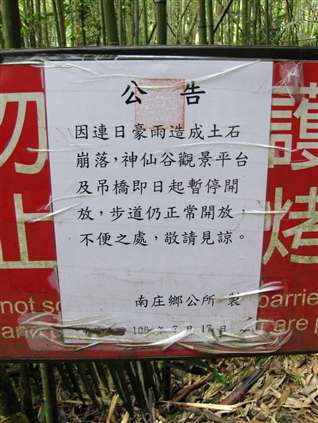 公告
因連日豪雨造成土石
崩落，神仙谷觀景平台
及吊橋即日起暫停開
放，步道仍正常開放，
不便之處，敬請見諒。
南庄鄉公所 製
7月17日
勿
止
護
烤
not so
barrie
and
are p